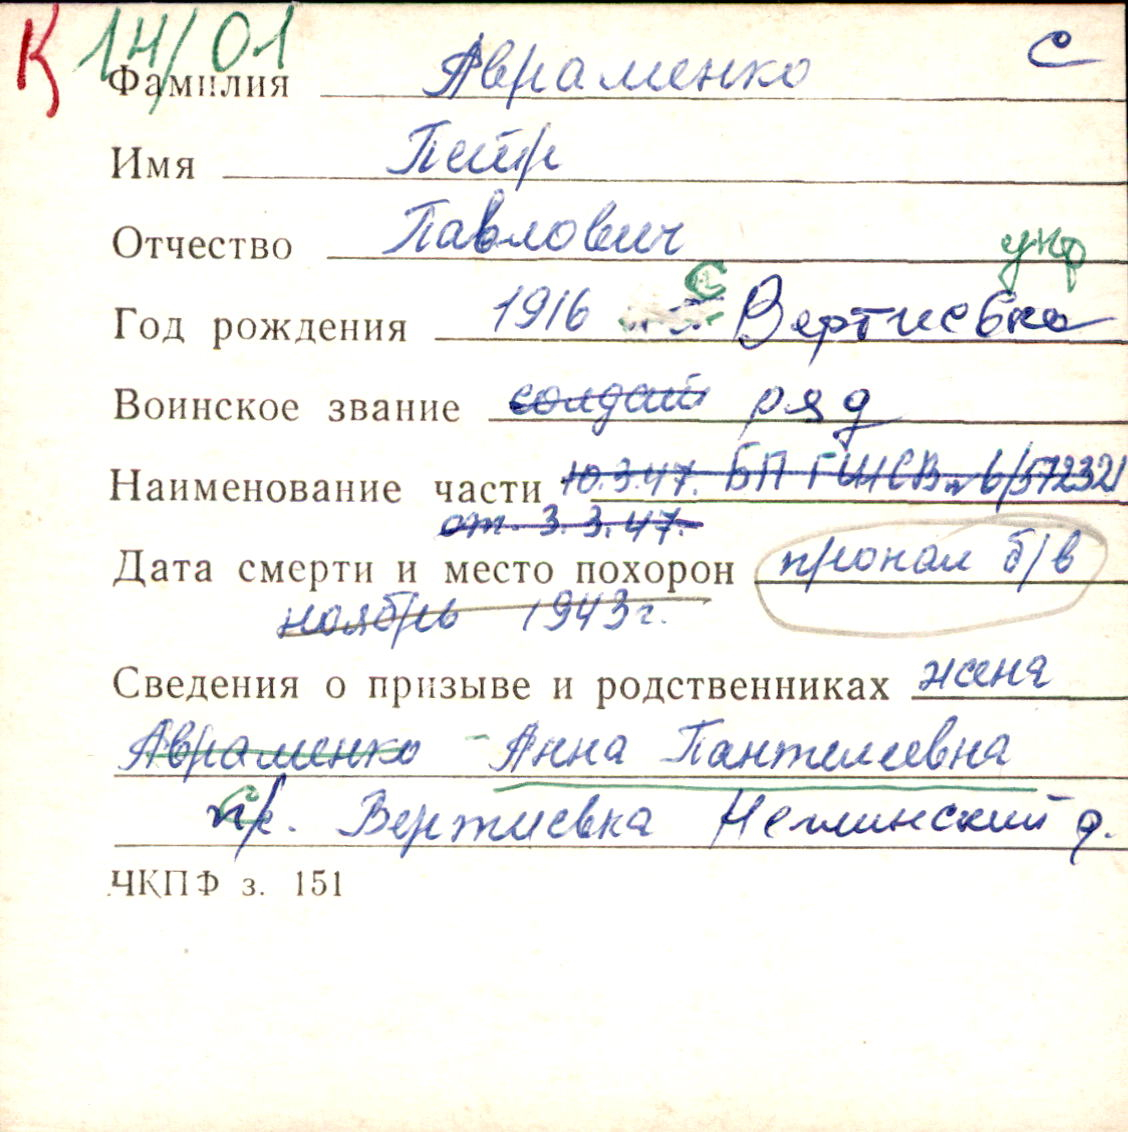 К 14/01 С
Фамилия Авраменко
Имя Петр
Отчество Павлович
укр
Год рождения 1916 с Вертиевка
Воинское звание солдат ряд
Наименование части 10.3.47. БП ГШСВ в/572321
от 3.3.47.
Дата смерти и место похорон пропал б/в
ноябрь 1943г.
Сведения о призыве и родственниках жена
Авраменко - Анна Пантелеевна
с. Вертиевка Нежинский р.
ЧКПФ з. 151